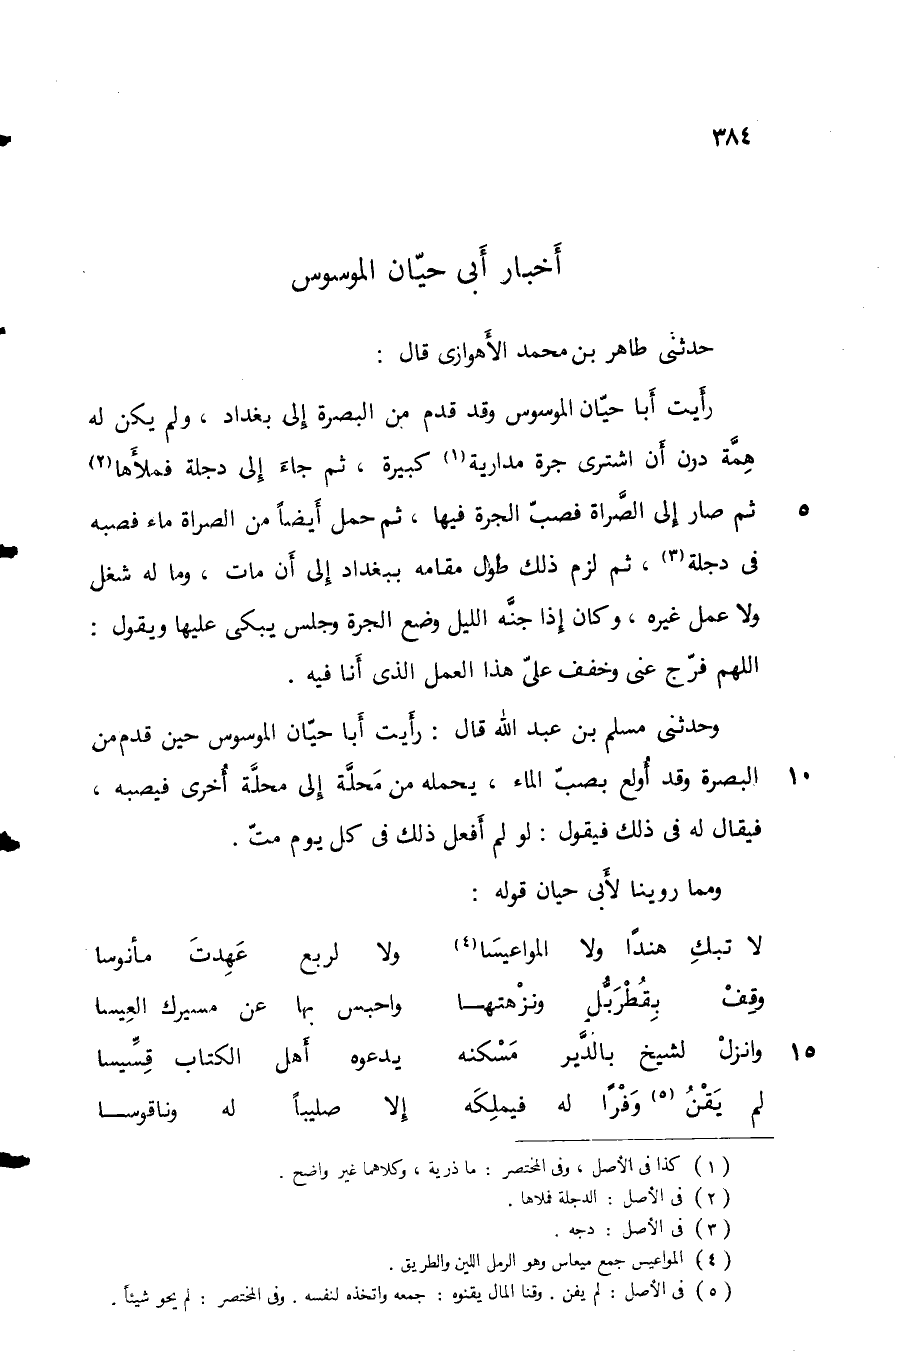 ٣٨٤
أَخبار أَبى حيّان الموسوس
حدثنى طاهر بن محمد الأَهوازى قال :
رأَيت أَبا حيّان الموسوس وقد قدم من البصرة إلى بغداد ، ولم يكن له
هِمَّة دون أَن اشترى جرة مدارية(١) كبيرة ، ثم جاءَ إلى دجلة فملأَها(٢)
٥ ثم صار إلى الصَّراة فصبّ الجرة فيها ، ثم حمل أَيضاً من الصراة ماء فصبه
فى دجلة(٣) ، ثم لزم ذلك طول مقامه ببغداد إلى أَن مات ، وما له شغل
ولا عمل غيره ، وكان إذا جنَّه الليل وضع الجرة وجلس يبكى عليها ويقول :
اللهم فرّج عنى وخفف علىّ هذا العمل الذى أَنا فيه .
وحدثنى مسلم بن عبد الله قال : رأَيت أَبا حيّان الموسوس حين قدم من
١٠ البصرة وقد أُولع بصبّ الماء ، يحمله من مَحلَّة إلى محلَّة أُخرى فيصبه ،
فيقال له فى ذلك فيقول : لو لم أَفعل ذلك فى كل يوم متّ .
ومما روينا لأَبى حيان قوله :
لا تبكِ هندًا ولا المواعيسَا(٤) ولا لربع عَهِدتَ مأنوسا
وقِفْ بِقُطْرَبُّلٍ ونزْهتهـا واحبس بها عن مسيرك العِيسا
١٥ وانزلْ لشيخ بالدَّير مَسْكنه يدعوه أَهل الكتاب قِسِّيسا
لم يَقْنُ(٥) وَفْرًا له فيملِكَه إلا صليباً له وناقوسـا
(١) كذا فى الأصل ، وفى المختصر : ما ذرية ، وكلاهما غير واضح .
(٢) فى الأصل : الدجلة فملاها .
(٣) فى الأصل : دجه .
(٤) المواعيس جمع ميعاس وهو الرمل اللين والطريق .
(٥) فى الأصل : لم يفن . وقنا المال يقنوه : جمعه واتخذه لنفسه . وفى المختصر : لم يحو شيئاً .